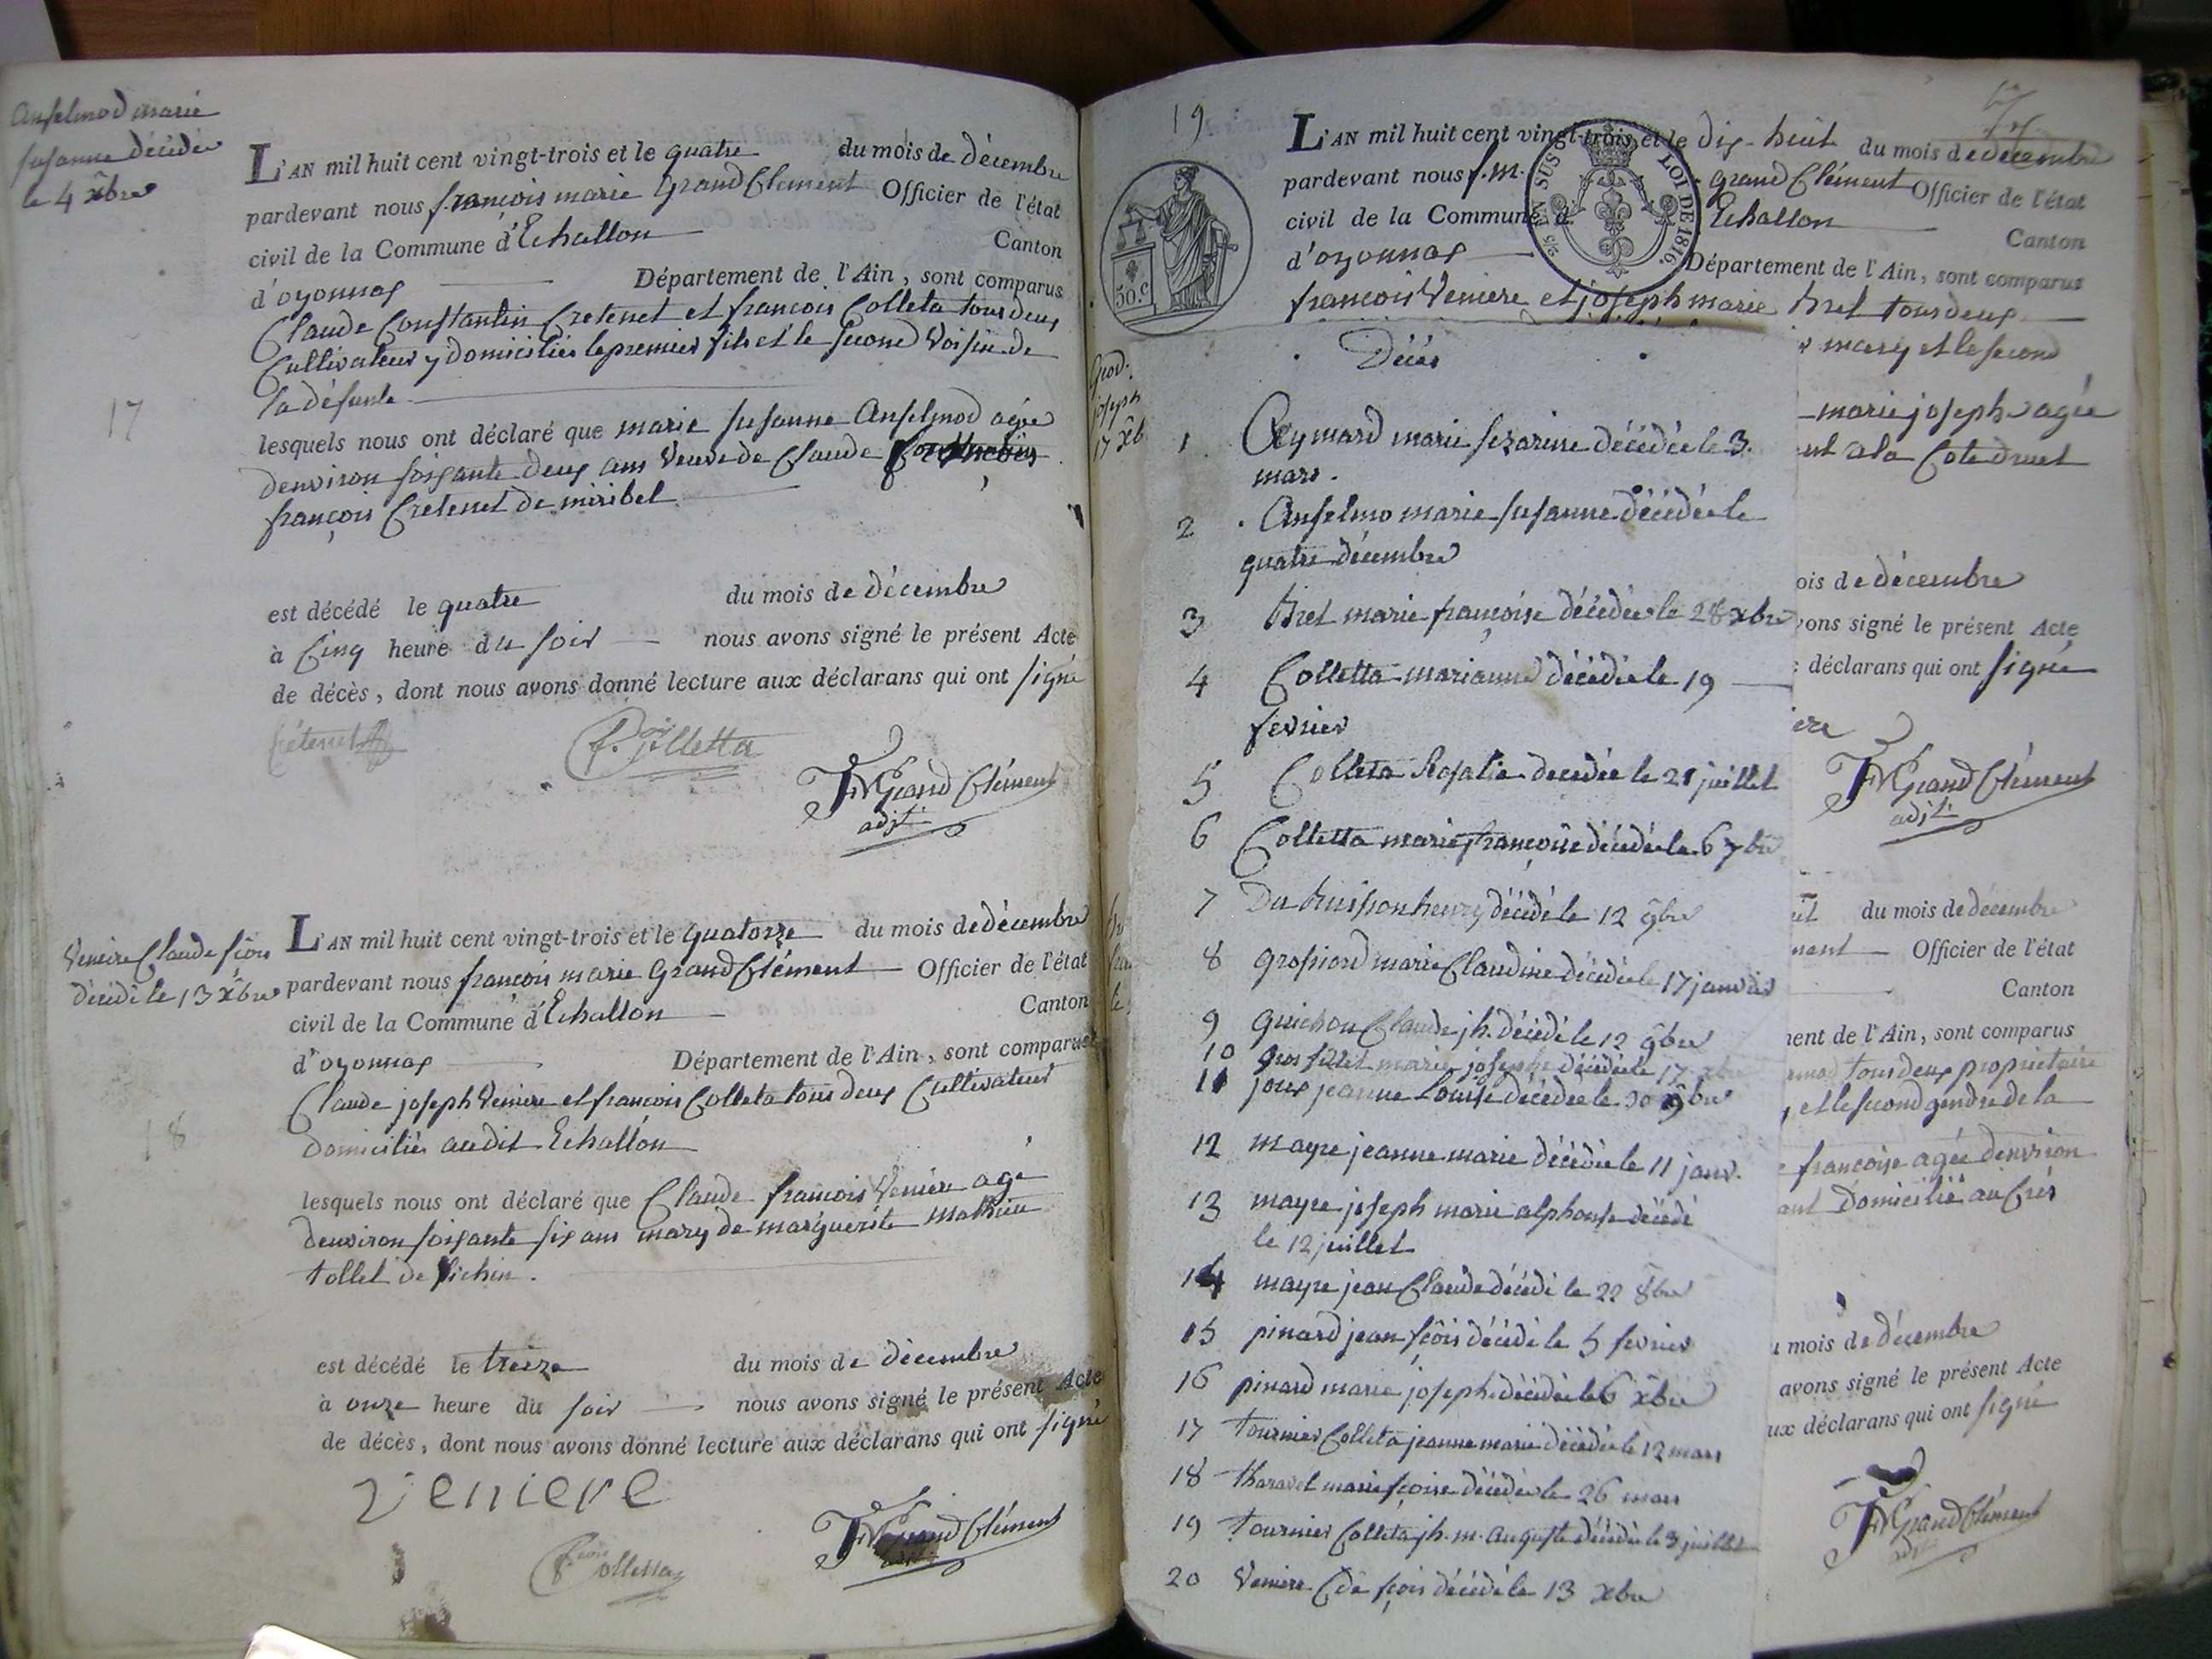 Anselmod marie
susanne décédée
le 4 xbre
L'AN mil huit cent vingt-trois et le quatre du mois de décembre
pardevant nous françois marie GrandClément Officier de l'état
civil de la Commune d'Echallon Canton
d'oyonnax Département de l'Ain, sont comparus
Claude Constantin Cretenet et francois Colleta tous deux
Cultivateur y domiciliés le premier fils et le second Voisin de
la défunte
17
lesquels nous ont déclaré que marie susanne Anselmod agée
denviron soixante deux ans Veuve de Claude
françois Cretenet de miribel
est décédé le quatre du mois de décembre
à Cinq heure du soir nous avons signé le présent Acte
de décès, dont nous avons donné lecture aux déclarans qui ont signé
Crétenet
f.çois Colletta
FMGrand Clément
adjt
Veniere Claude fçois
décédé le 13 xbre
L'AN mil huit cent vingt-trois et le quatorze du mois de décembre
pardevant nous françois marie GrandClément Officier de l'état
civil de la Commune d'Echallon Canton
d'oyonnax Département de l'Ain, sont comparus
Claude joseph Veniere et francois Colleta tous deux Cultivateur
domiciliés audit Echallon
18
lesquels nous ont déclaré que Claude francois Veniere agé
denviron soixante six ans mary de marguerite Mathieu
tollet de
est décédé le treize du mois de décembre
à onze heure du soir nous avons signé le présent Acte
de décès, dont nous avons donné lecture aux déclarans qui ont signé
veniere
f.çois Colletta
FMGrand Clément
19
L'AN mil huit cent vingt-trois et le dix-huit du mois de décembre
pardevant nous f.m. grand Clément Officier de l'état
civil de la Commune d' Echallon Canton
d'oyonnax Département de l'Ain, sont comparus
francois Veniere et joseph marie Bret tous deux
50.c
EN SUS
LOI DE 1816
Décès
joseph
17 xb
1 Aymard marie sezarine décédée le 3.
mars.
2 Anselmo marie susanne décédée le
quatre décembre
3 Bret marie françoise décédée le 28 xbre
4 Colletta marianne décédée le 19
fevrier
5 Colleta Rosalie decedée le 21 juillet
6 Colletta marie françoise décédée le 6 7bre
7 Dubuisson henry décédé le 12 9bre
8 grossiord marie Claudine décédée le 17 janvier
9 guichon Claude jh. décédé le 12 9bre
10 grosfillet marie joseph décédée le 17 xbre
11 joux jeanne Louise décédée le 30 9bre
12 mayre jeanne marie décédée le 11 janv.
13 mayre joseph marie alphonse décédé
le 12 juillet
14 mayre jean Claude décédé le 22 8bre
15 pinard jean fçois décédé le 5 fevrier
16 pinard marie joseph décédée le 6 xbre
17 tournier Colleta jeanne marie décédée le 12 mars
18 tharavel marie fçoise décédée le 26 mars
19 tournier Colleta jh. m. auguste décédé le 3 juillet
20 Veniere Cde fçois décédé le 13 xbre
mary et le second
marie joseph agée
ent a la Cote druet
ois de décembre
vons signé le présent Acte
déclarans qui ont signé
ere
FMGrand Clément
adjt
du mois de décembre
ment Officier de l'état
Canton
ment de l'Ain, sont comparus
tous deux propriétaire
et le second gendre de la
francoise agée denviron
ant domicilié au Crés
mois de décembre
avons signé le présent Acte
ux déclarans qui ont signé
FMGrand Clément